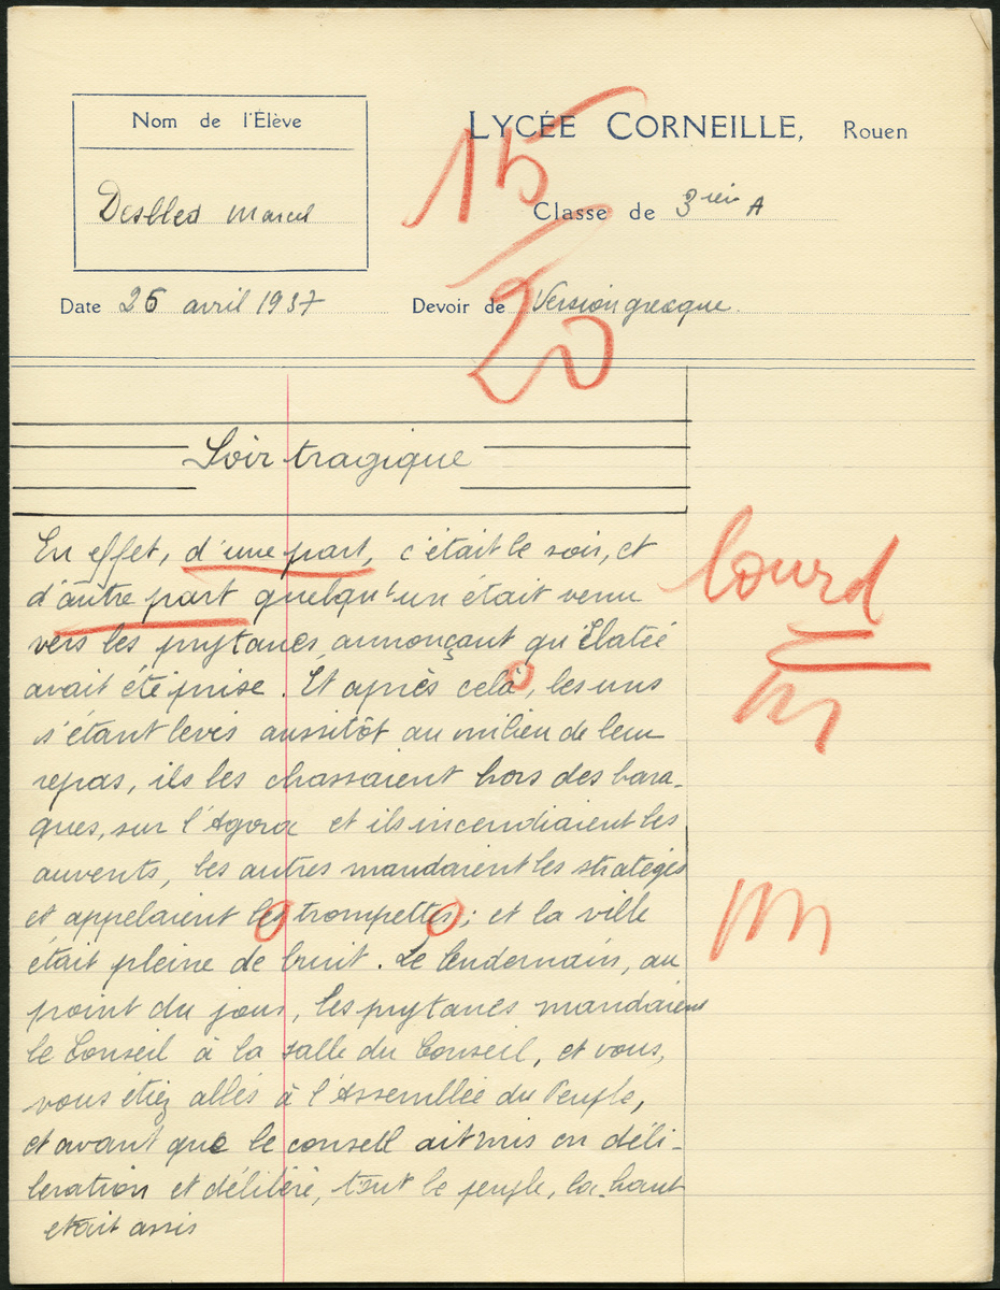 Nom de l'Élève
LYCÉE CORNEILLE, Rouen
15
20
Marcel
Classe de 3ième A
Date 26 avril 1937
Devoir de Version grecque.
Soir tragique
En effet, d'une part, c'était le soir, et
lourd
d'autre part quelqu'un était venu
vers les prytanes annonçant qu'Élatée
avait été prise. Et après celà, les uns
s'étant levés aussitôt au milieu de leur
repas, ils les chassaient hors des bara-
ques, sur l'Agora et ils incendiaient les
auvents, les autres mandaient les stratèges
et appelaient les trompettes ; et la ville
était pleine de bruit. Le lendemain, au
point du jour, les prytanes mandaient
le Conseil à la salle du Conseil, et vous,
vous étiez allés à l'Assemblée du Peuple,
et avant que le conseil ait mis en déli-
bération et délibéré, tout le peuple, là-haut
etait assis